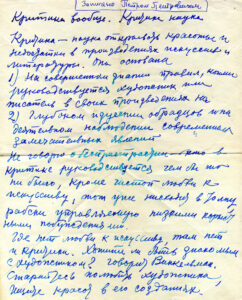 Записано Петром Григорьевичем
Критика вообще. Критика наука
Критика – наука открывать красоты и
недостатки в произведениях искусств и
литературы. Она основана
1) На совершенном знании правил, коими
руководствуется художник или
писатель в своих произведениях на
2) глубоком изучении образцов и на
деятельном наблюдении современных
замечательных явлений.
Не говорю о беспристрастии – кто в
критике руководствуется чем бы то
ни было, кроме чистой любви к
искусству, тот уже нисходит в толпу
рабски управляемую низкими корыст-
ными побуждениями.
Где нет любви к искусству, там нет
и критики. Хотите ли быть знатоком
в художествах? говорит Винкельман.
Старайтесь полюбить художника,
ищите красот в его созданиях.